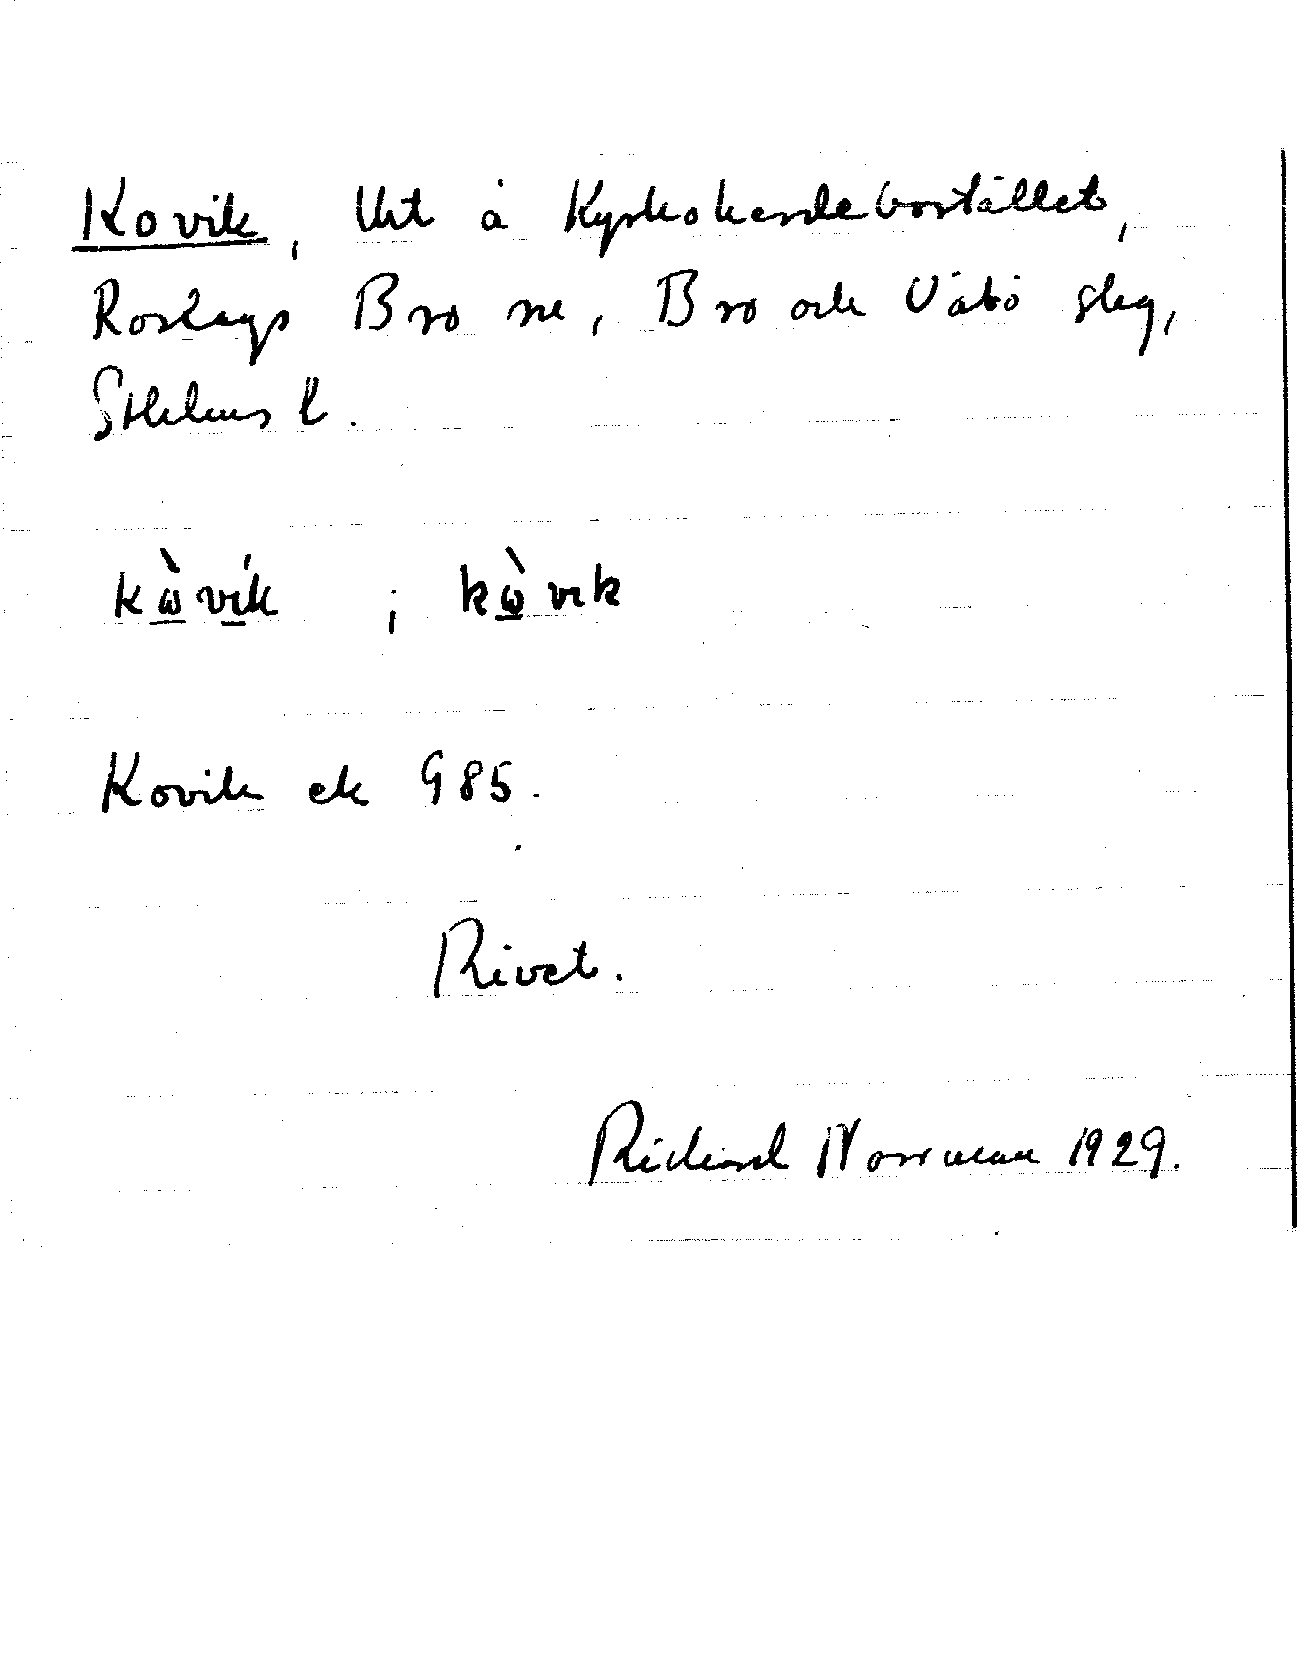 Kovik, Utj å Kyrkoherdebostället,
Roslags Bro sn, Bro och Vätö skg,
Sthlms l.
kὼvík ; kὼvık
Kovik ek G 85.
Rivet.
Richard Norrman 1929.